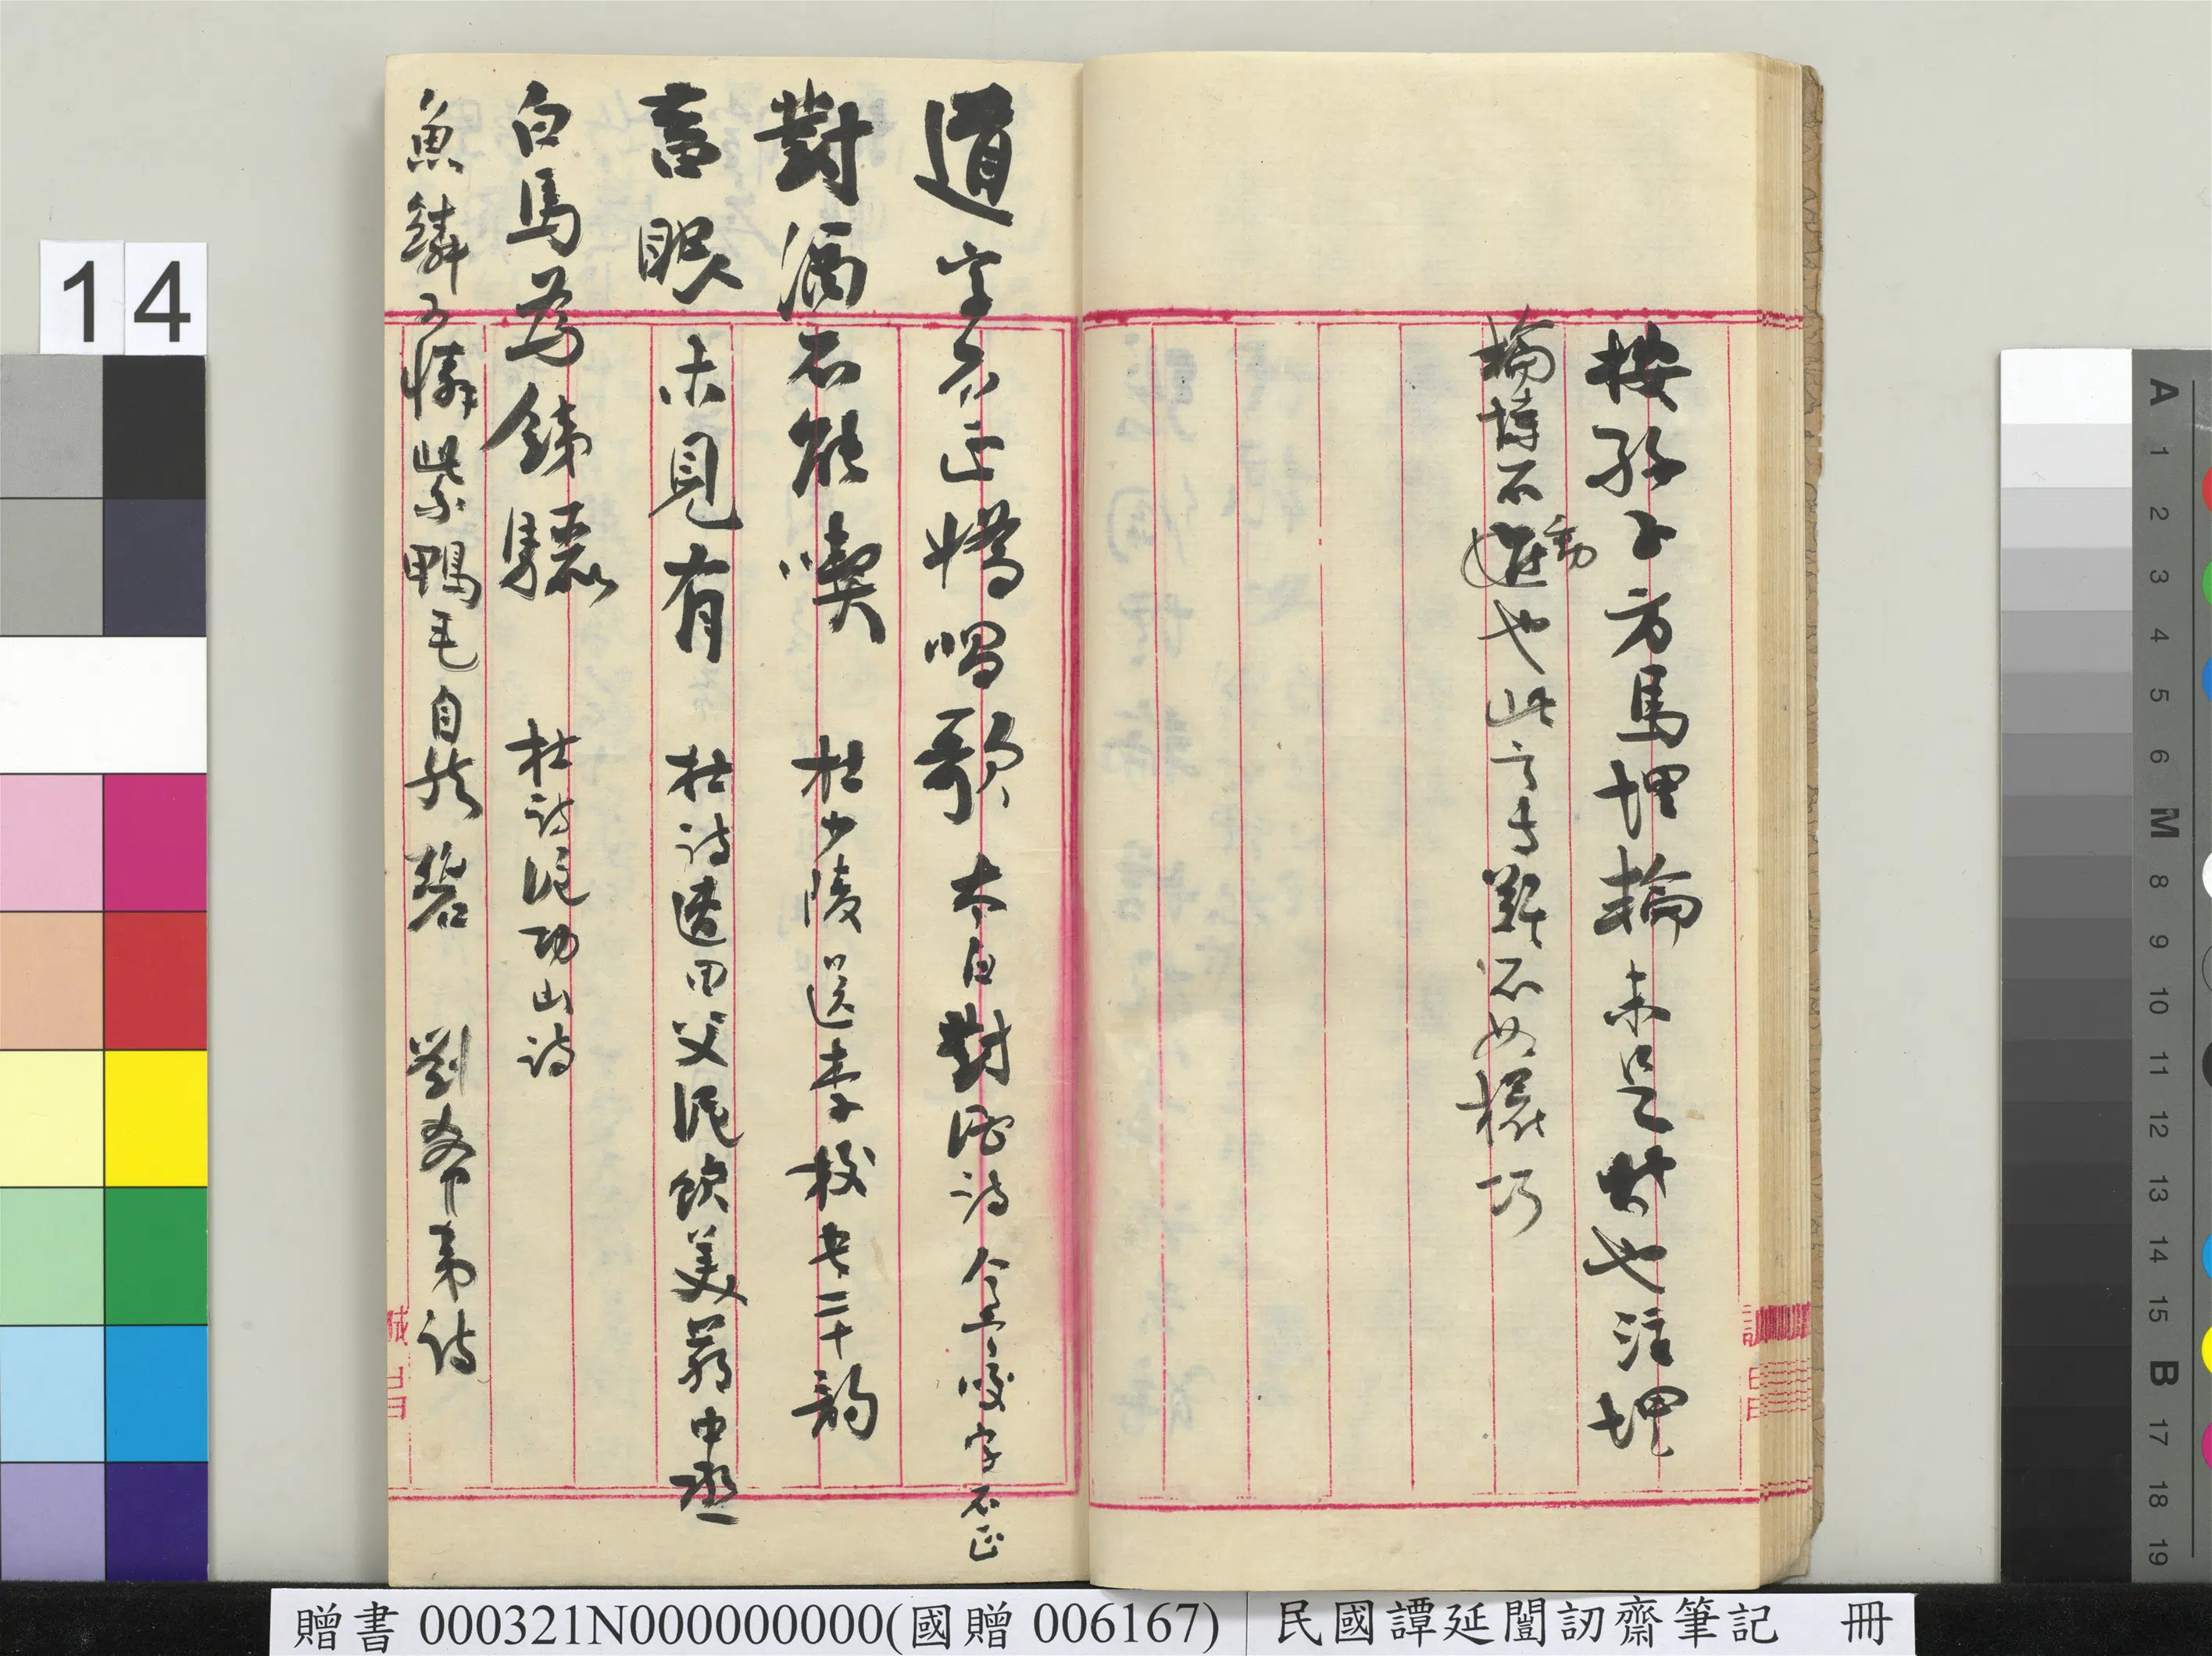 按孫子方馬埋輪未足恃也注埋
輪不動也此言專難不如權巧
道字不正嬌唱歌 太白對酒詩 今言咬字不正
對酒不能喫 杜少陵送李校書二十韻
畜眼未見有 杜詩遭田父泥飲美嚴中丞
白馬為鐵驪 杜詩泥功山詩
魚鱗可憐紫鴨毛自然碧 劉希夷詩
14
A 1 2 3 4 5 6 M 8 9 10 11 12 13 14 15 B 17 18 19
贈書 000321N000000000(國贈 006167) 民國譚延闓訒齋筆記 冊